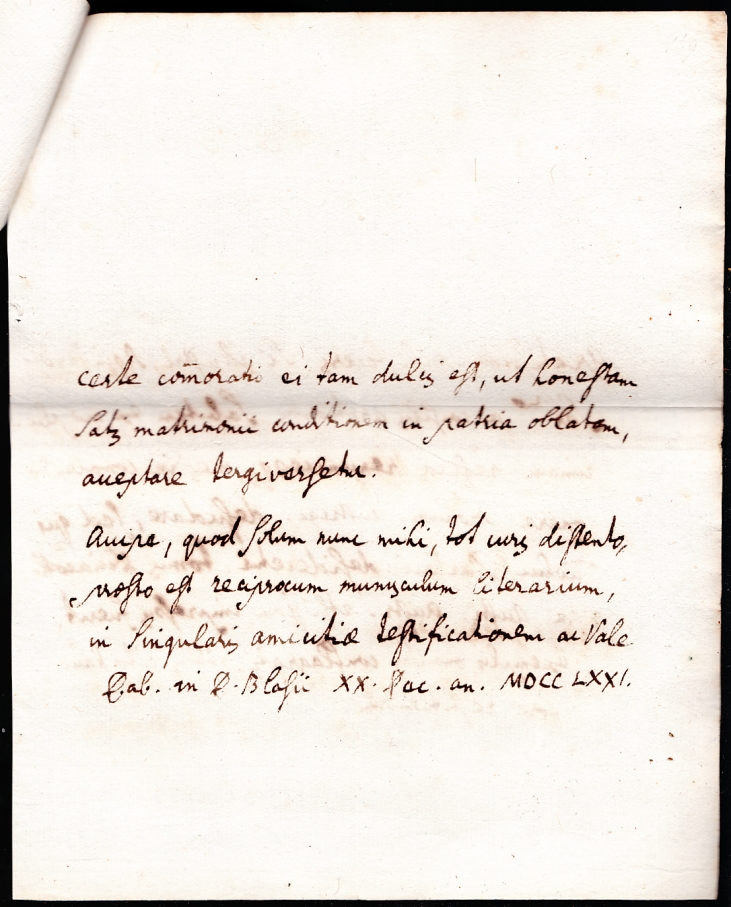 certe com̄oratio ei tam dulcis est, ut honestam
satis matrimonii conditionem in patria oblatam,
acceptare tergiversetur.
Accipe, quod solum nunc mihi, tot curis distento,
prosto est reciprocum munusculum literarium,
in singularis amicitiæ testificationem ac Vale
Dab. in D. Blasii XX. Dec. an. MDCCLXXI.